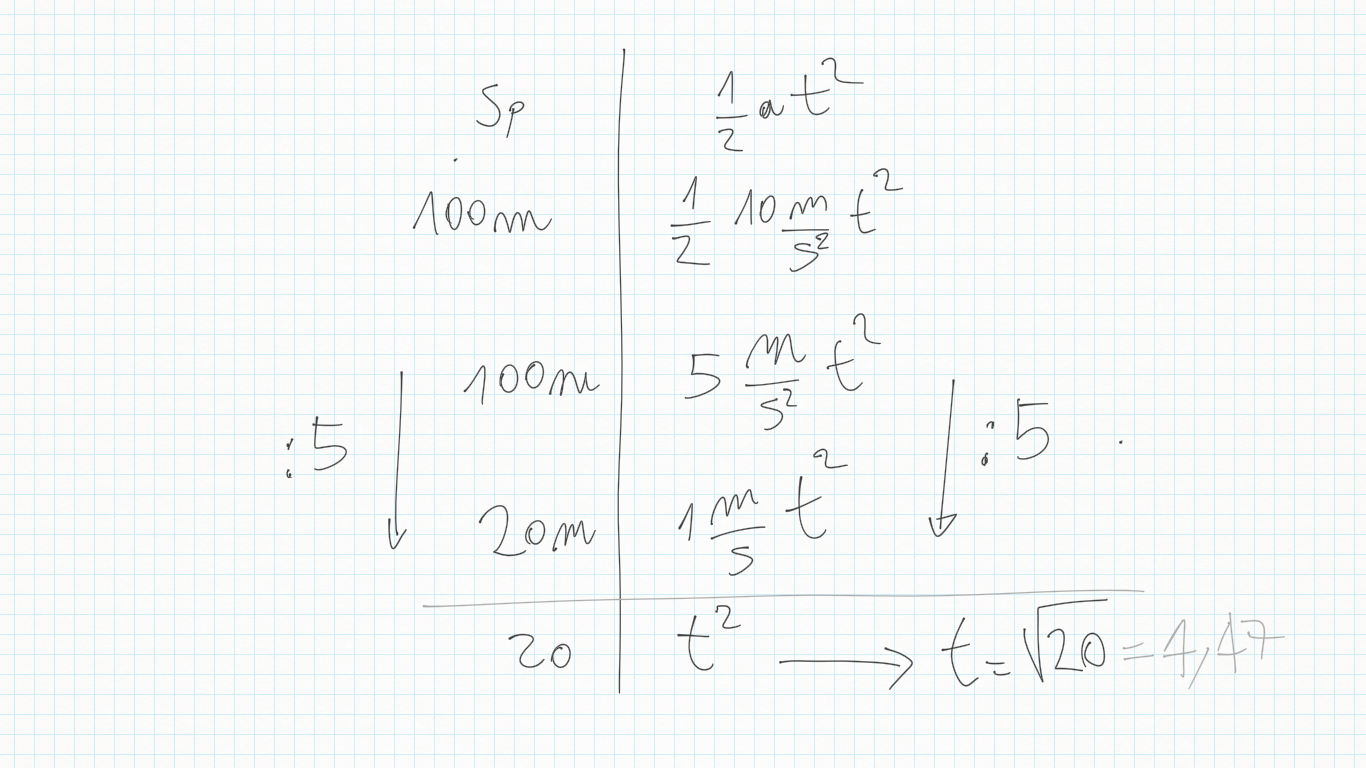 Sp | 1/2 at²
100m | 1/2 10 m/s² t²
100m | 5 m/s² t²
:5 :5
20m | 1 m/s t²
20 | t² → t = √20 = 4,47